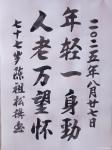 二〇二五年八月廿七日
年轻一身劲
人老万望怀
七十七岁陈祖松撰书